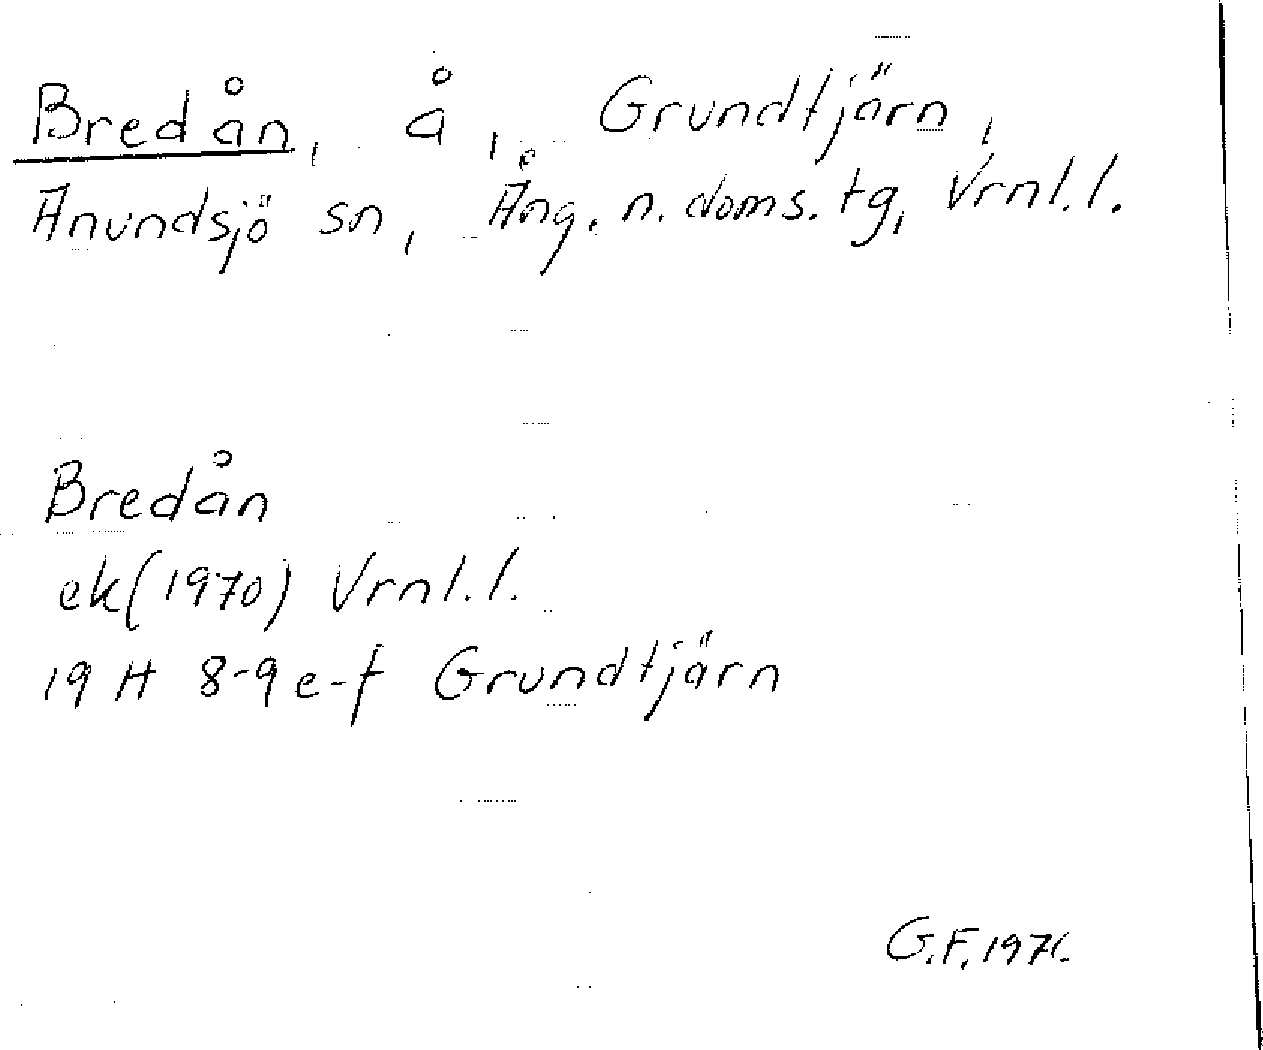 Bredån, å, Grundtjärn,
Anundsjö sn, Ång. n. doms. tg, Vrnl. l.
Bredån
ek (1970) Vrnl. l.
19 H 8-9 e-f Grundtjärn
G.F.